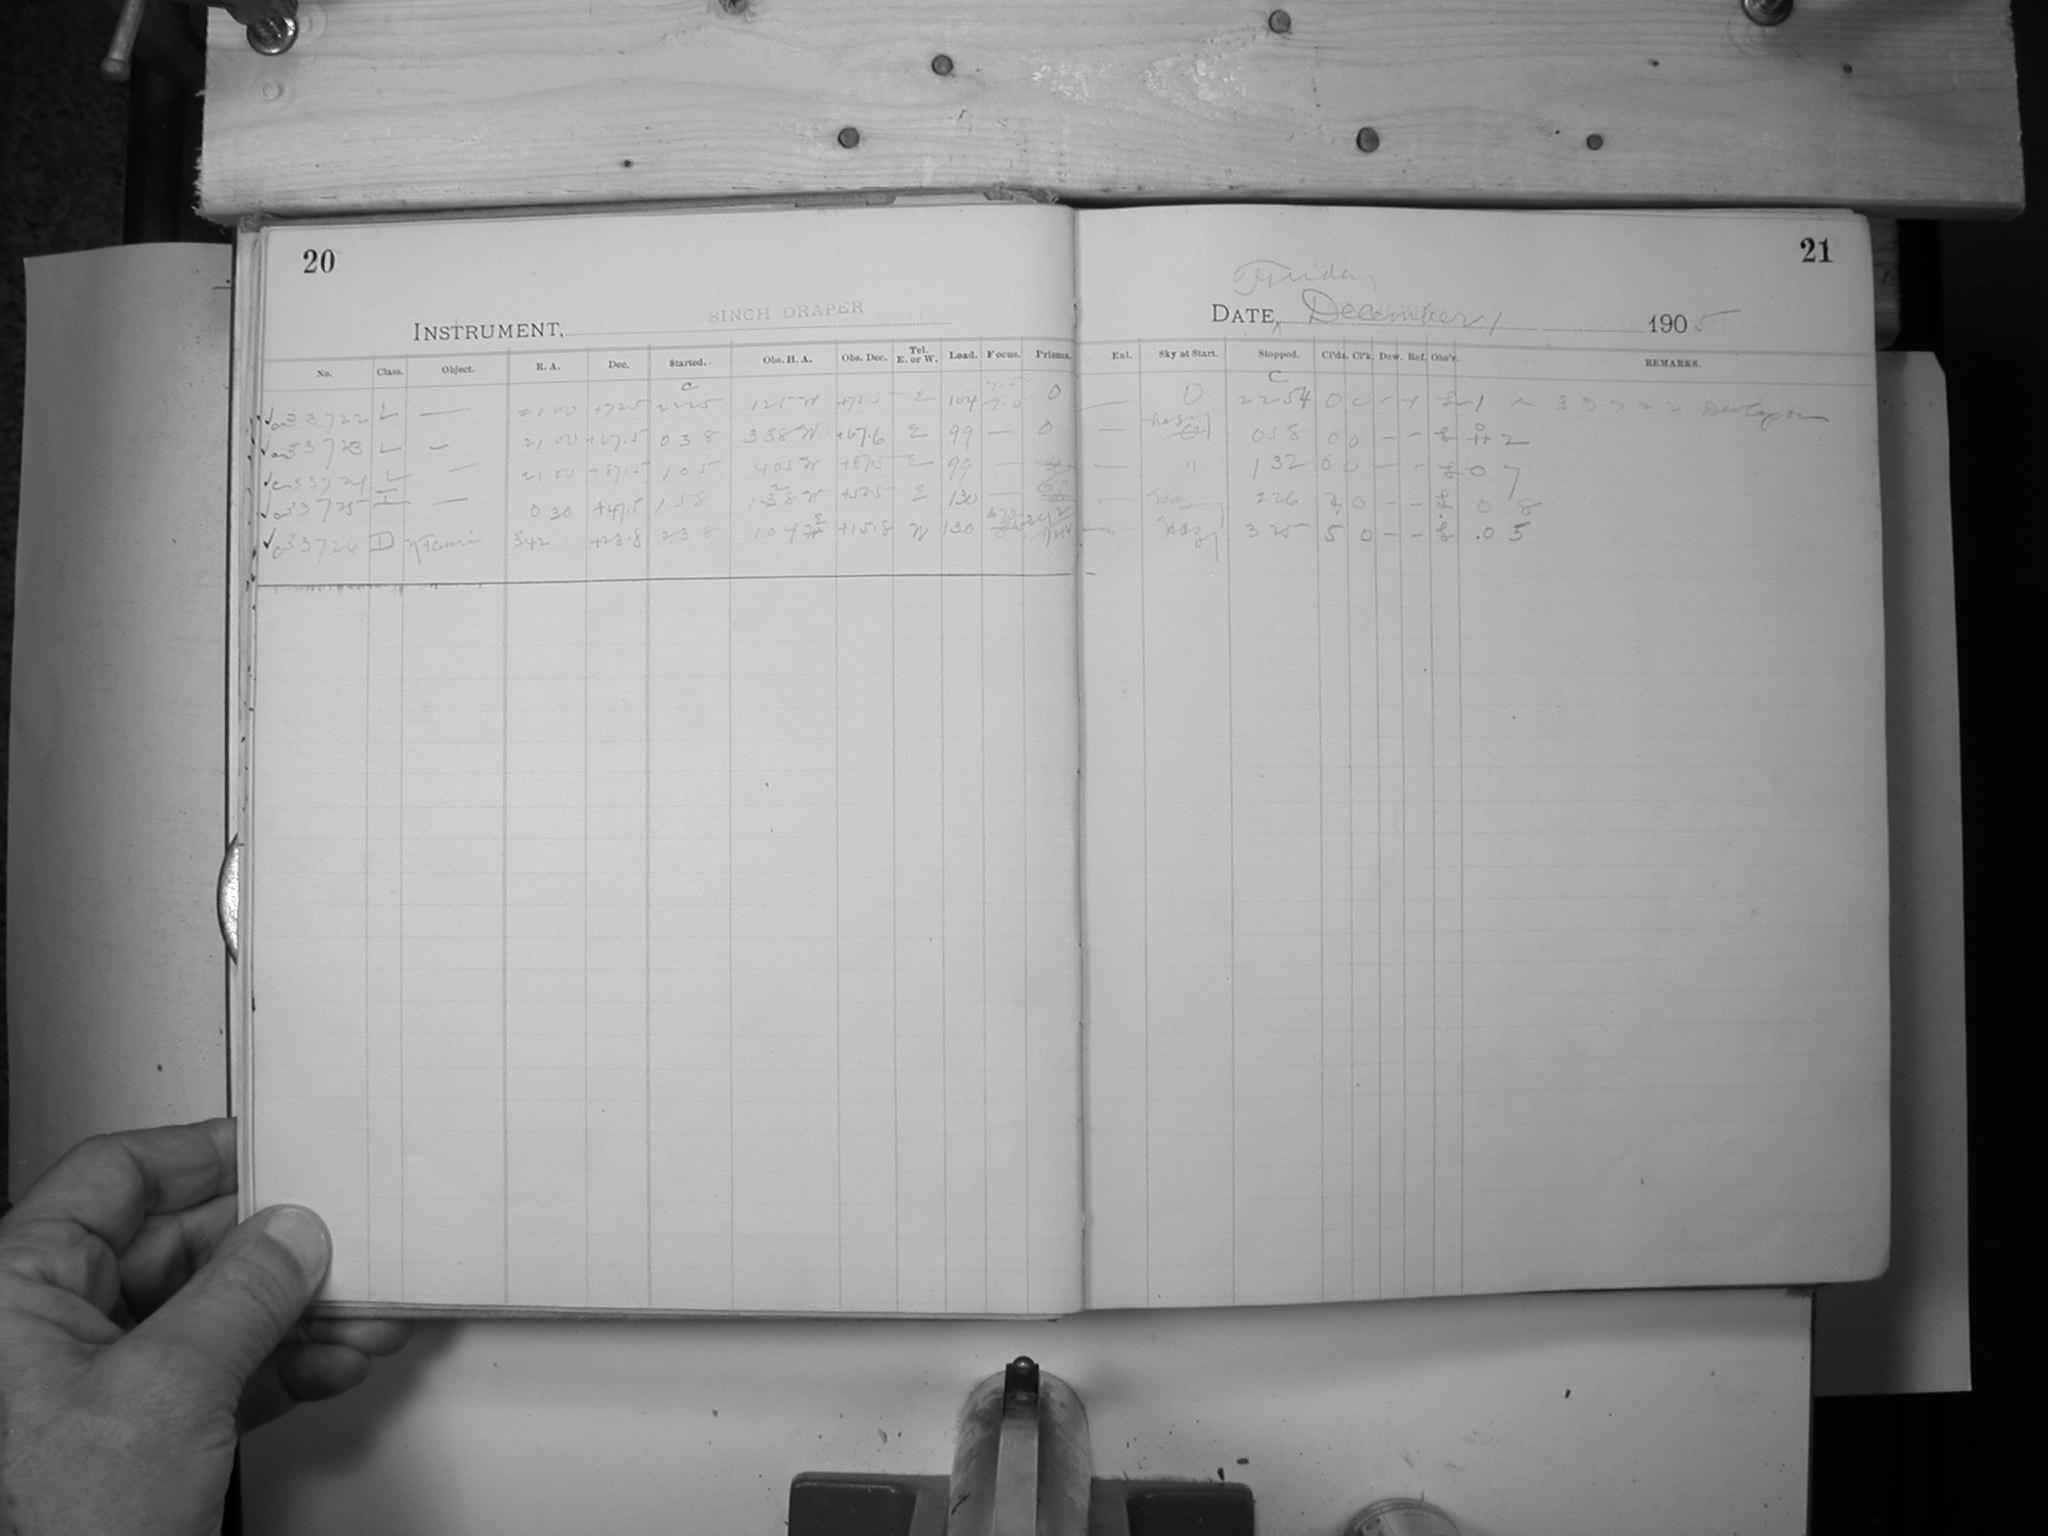 20
INSTRUMENT, 8INCH DRAPER
No. Class. Object. R. A. Dec. Started. Obs. H. A. Obs. Dec. Tel. E. or W. Load. Focus. Prisms.
C
33722 L — 21 00 +72.5 22 25 1 25 W +72.5 E 104 0
33723 L — 21 00 +67.5 0 38 3 38 W +67.6 E 99 — 0
L — 21 00 1 05 4 05 W E 99 —
33725 I — 0 30 +47.5 1 58 E 130 —
33726 D Tauri 3 42 +23.8 2 38 1 04 E +15.8 W 130
21
Friday
DATE, December 1 1905
Enl. Sky at Start. Stopped. Cl'ds. Cl'k. Dew. Ref. Obs'r. REMARKS.
C
— 0 22 54 0 0 - 1 33722
— Hazy 0 58 0 0 - - 2
— " 1 32 0 0 — - 0 7
— 2 26 0 - - 0 8
— Hazy 3 25 5 0 - - .0 5